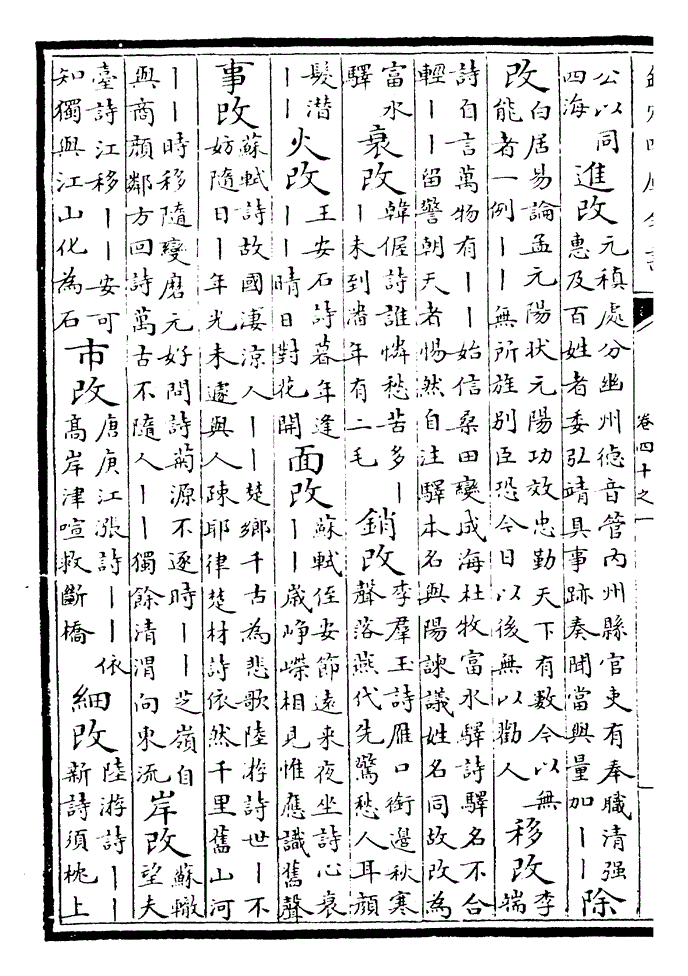 卷四十之一
公以同
四海
進改
元稹處分幽州德音管內州縣官吏有奉職清强
惠及百姓者委弘靖具事跡奏聞當與量加丨丨
除
改
白居易論孟元陽狀元陽功效忠勤天下有數今以無
能者一例丨丨無所旌別臣恐今日以後無以勸人
移改
李
端
詩自言萬物有丨丨始信桑田變成海杜牧富水驛詩驛名不合
輕丨丨留警朝天者惕然自注驛本名與陽諫議姓名同故改為
富水
驛
衰改
韓偓詩誰憐愁苦多丨
丨未到潘年有二毛
銷改
李羣玉詩雁口銜邊秋寒
聲落燕代先驚愁人耳顔
髮潜
丨丨
火改
王安石詩暮年逢
丨丨晴日對花開
面改
蘇軾侄安節遠來夜坐詩心衰
丨丨歲崢嶸相見惟應識舊聲
事改
蘇軾詩故國凄涼人丨丨楚鄉千古為悲歌陸游詩世丨不
妨隨日丨年光未遽與人踈耶律楚材詩依然千里舊山河
丨丨時移隨變磨元好問詩菊源不逐時丨丨芝嶺自
與商顔鄰方回詩萬古不隨人丨丨獨餘清渭向東流
岸改
蘇轍
望夫
臺詩江移丨丨安可
知獨與江山化為石
市改
唐庚江漲詩丨丨依
高岸津喧救斷橋
細改
陸游詩丨丨
新詩須枕上